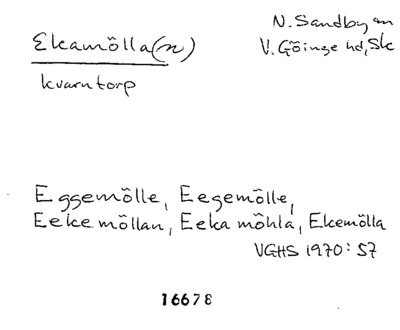 Ekamölla(n)
N. Sandby sn
V. Göinge hd, Sk
kvarntorp
Eggemölle, Eegemölle,
Eeke möllan, Eeka möhla, Ekemölla
VGHS 1970: 57
16678